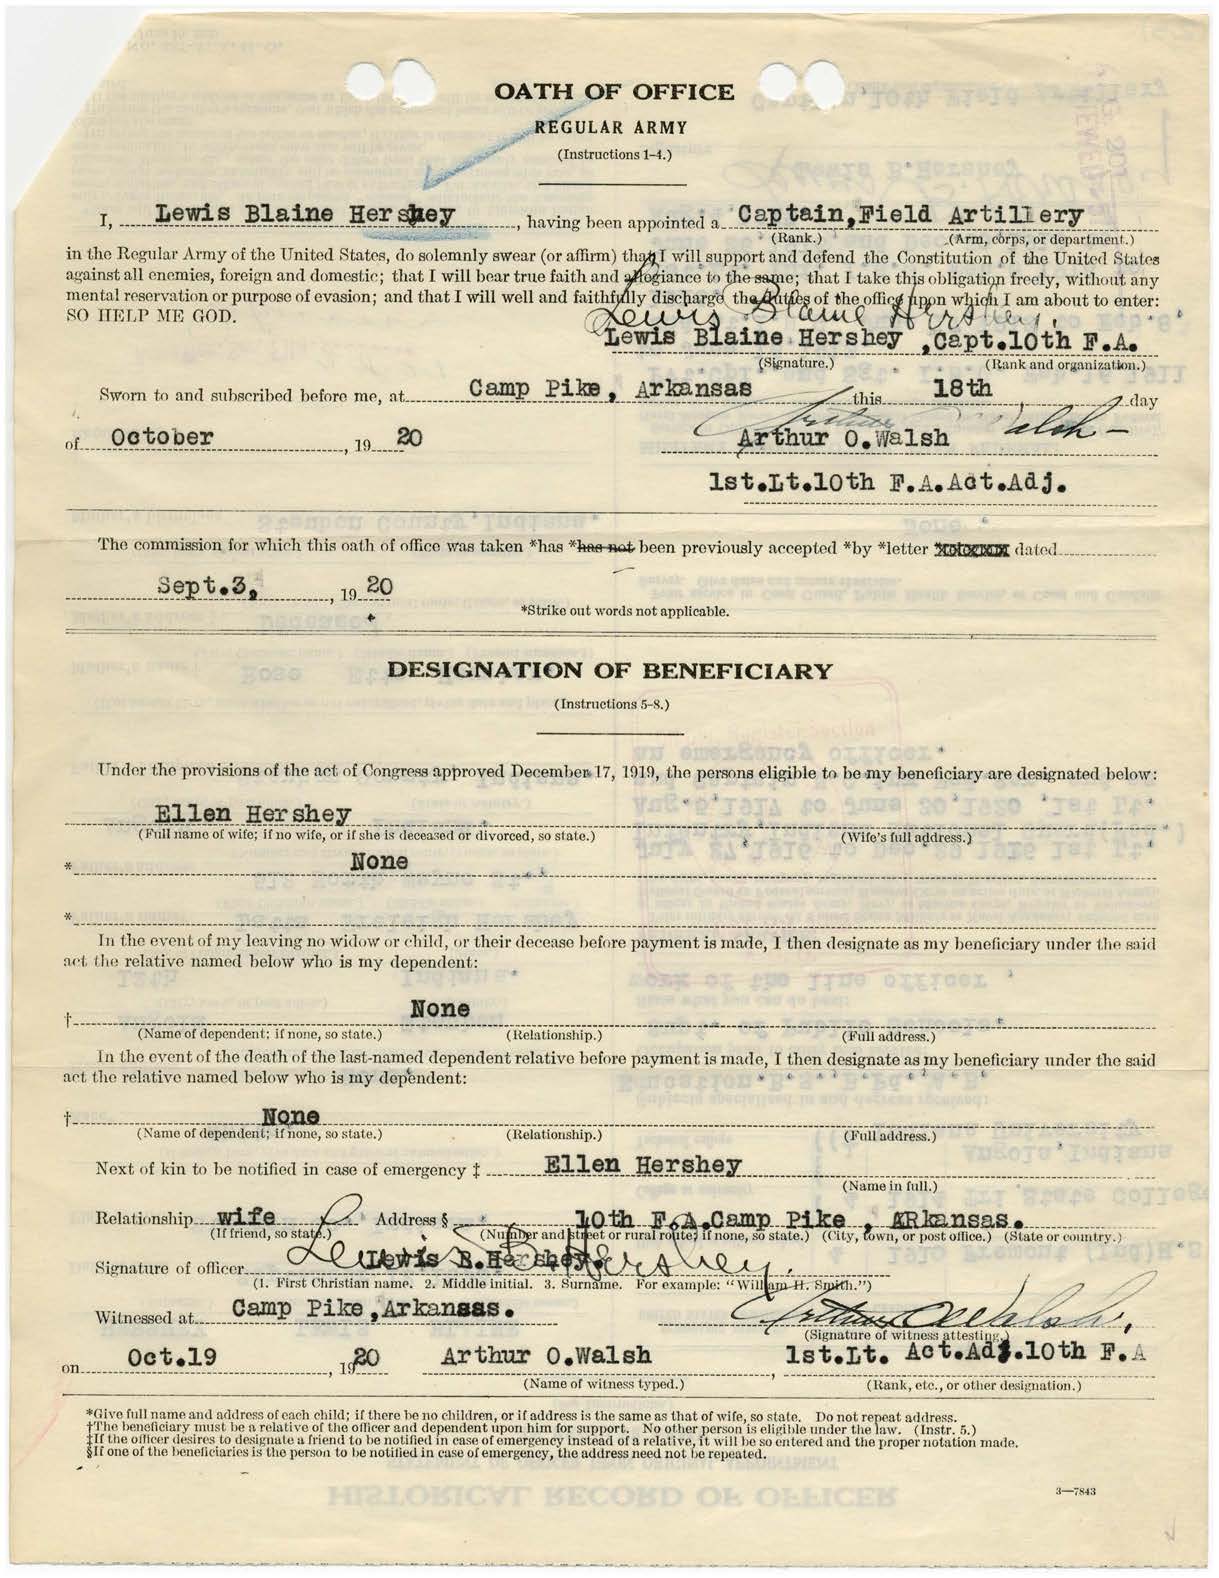 OATH OF OFFICE
REGULAR ARMY
(Instructions 1-4.)
I, Lewis Blaine Hershey, having been appointed a Captain,Field Artillery
(Rank.) (Arm, corps, or department.)
in the Regular Army of the United States, do solemnly swear (or affirm) that I will support and defend the Constitution of the United States
against all enemies, foreign and domestic; that I will bear true faith and allegiance to the same; that I take this obligation freely, without any
mental reservation or purpose of evasion; and that I will well and faithfully discharge the duties of the office upon which I am about to enter:
SO HELP ME GOD.
Lewis Blaine Hershey.
Lewis Blaine Hershey ,Capt.10th F.A.
(Signature.) (Rank and organization.)
Sworn to and subscribed before me, at Camp Pike, Arkansas this 18th day
Arthur O Walsh
of October, 19 20 Arthur O.Walsh
1st.Lt.10th F.A.Act.Adj.
The commission for which this oath of office was taken *has *has not been previously accepted *by *letter dated
Sept.3, , 19 20
*Strike out words not applicable.
DESIGNATION OF BENEFICIARY
(Instructions 5-8.)
Under the provisions of the act of Congress approved December 17, 1919, the persons eligible to be my beneficiary are designated below:
Ellen Hershey
(Full name of wife; if no wife, or if she is deceased or divorced, so state.) (Wife's full address.)
* None
*
In the event of my leaving no widow or child, or their decease before payment is made, I then designate as my beneficiary under the said
act the relative named below who is my dependent:
† None
(Name of dependent; if none, so state.) (Relationship.) (Full address.)
In the event of the death of the last-named dependent relative before payment is made, I then designate as my beneficiary under the said
act the relative named below who is my dependent:
† None
(Name of dependent; if none, so state.) (Relationship.) (Full address.)
Next of kin to be notified in case of emergency ‡ Ellen Hershey
(Name in full.)
Relationship wife Address § 10th F.A.Camp Pike , ARkansas.
(If friend, so state.) (Number and street or rural route; if none, so state.) (City, town, or post office.) (State or country.)
Lewis B. Hershey.
Signature of officer Lewis B.Hershey.
(1. First Christian name. 2. Middle initial. 3. Surname. For example: "William H. Smith.")
Witnessed at Camp Pike,Arkansas. Arthur O Walsh,
(Signature of witness attesting.)
on Oct.19 , 1920 Arthur O.Walsh , 1st.Lt. Act.Adj.10th F.A
(Name of witness typed.) (Rank, etc., or other designation.)
*Give full name and address of each child; if there be no children, or if address is the same as that of wife, so state. Do not repeat address.
†The beneficiary must be a relative of the officer and dependent upon him for support. No other person is eligible under the law. (Instr. 5.)
‡If the officer desires to designate a friend to be notified in case of emergency instead of a relative, it will be so entered and the proper notation made.
§If one of the beneficiaries is the person to be notified in case of emergency, the address need not be repeated.
3—7843